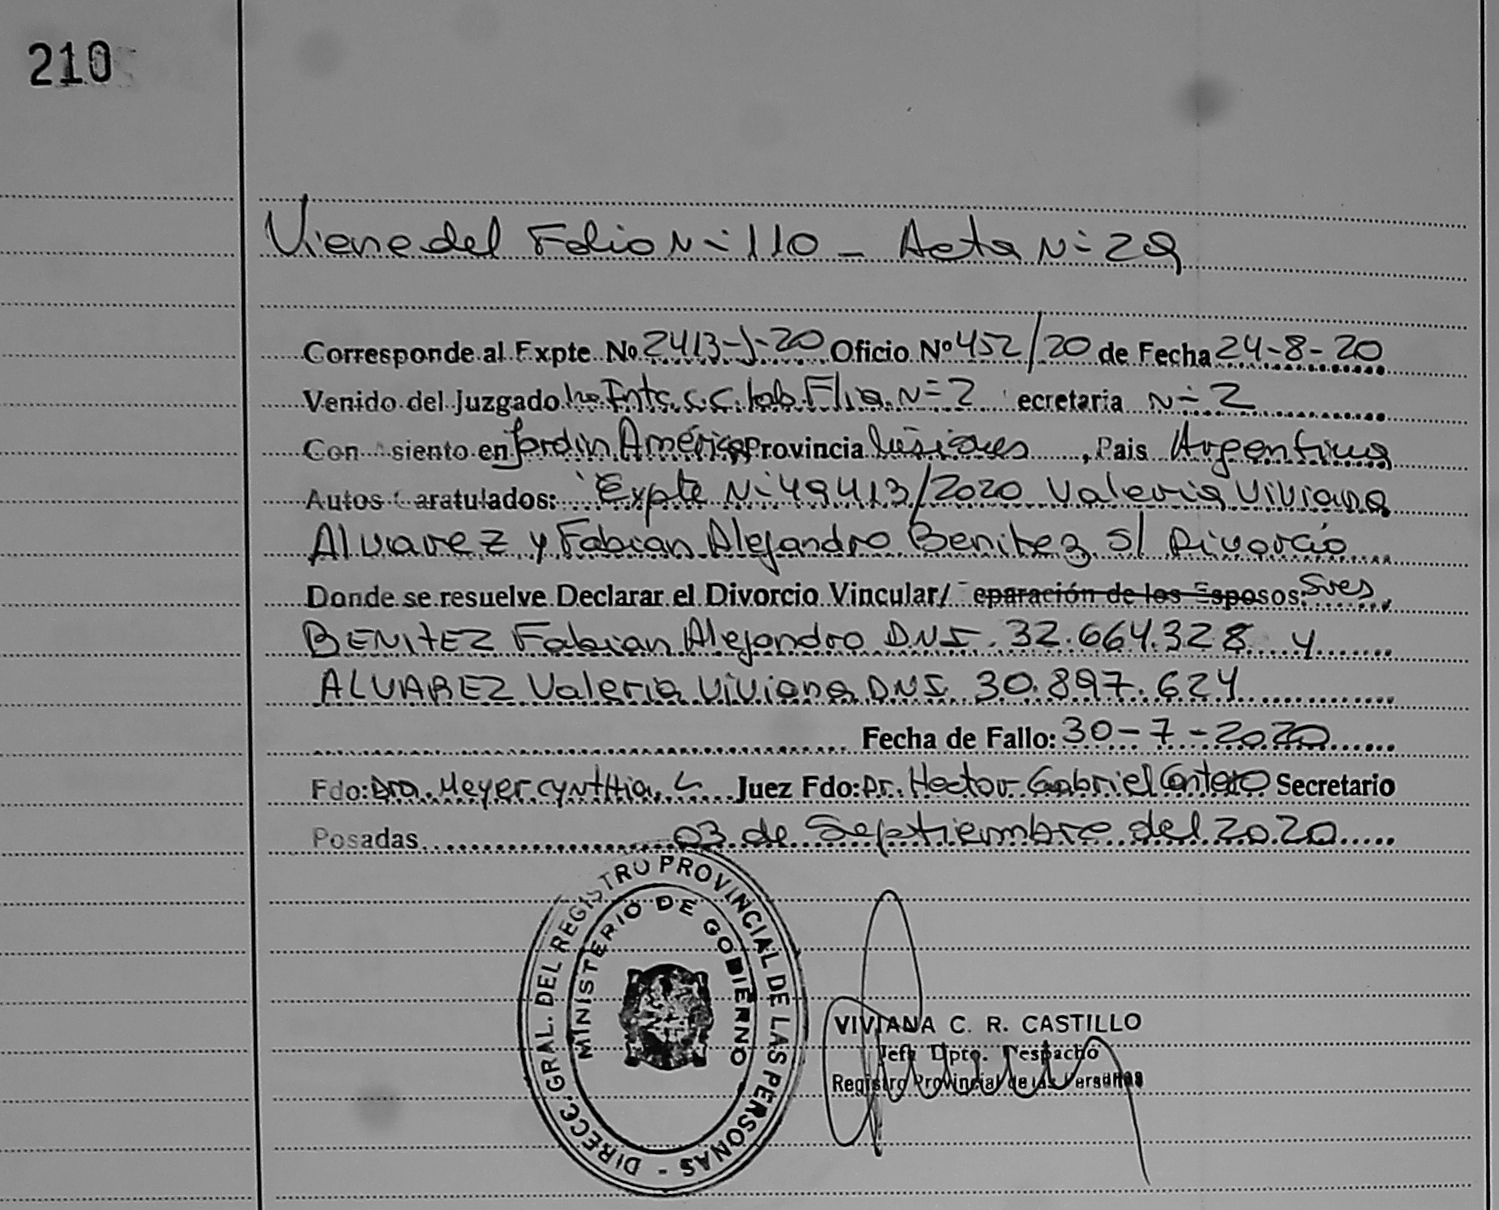 210
Viene del Folio N° 110 - Acta N° 29
Corresponde al Expte No 2413-J-20 Oficio Nº 452/20 de Fecha 24-8-20
Venido del Juzgado 1ro Inta. C.C. Lab. Flia. N° 2 ecretaria N° 2
Con siento en Jardin América Provincia Misiones, Pais Argentina
Autos Caratulados: "Expte N° 49413/2020 Valeria Viviana
Alvarez y Fabian Alejandro Benitez S/ Divorcio
Donde se resuelve Declarar el Divorcio Vincular/ eparación de los Esposos: Sres
BENITEZ Fabian Alejandro D.N.I. 32.664.328 y
ALVAREZ Valeria Viviana D.N.I. 30.897.624
Fecha de Fallo: 30-7-2020
Fdo: Dra. Meyer Cynthia. L Juez Fdo: Dr. Hector Gabriel Secretario
Posadas 03 de Septiembre del 2020
DIRECC. GRAL. DEL REGISTRO PROVINCIAL DE LAS PERSONAS -
MINISTERIO DE GOBIERNO
VIVIANA C. R. CASTILLO
Jefe Dpto. Despacho
Registro Provincial de las Personas